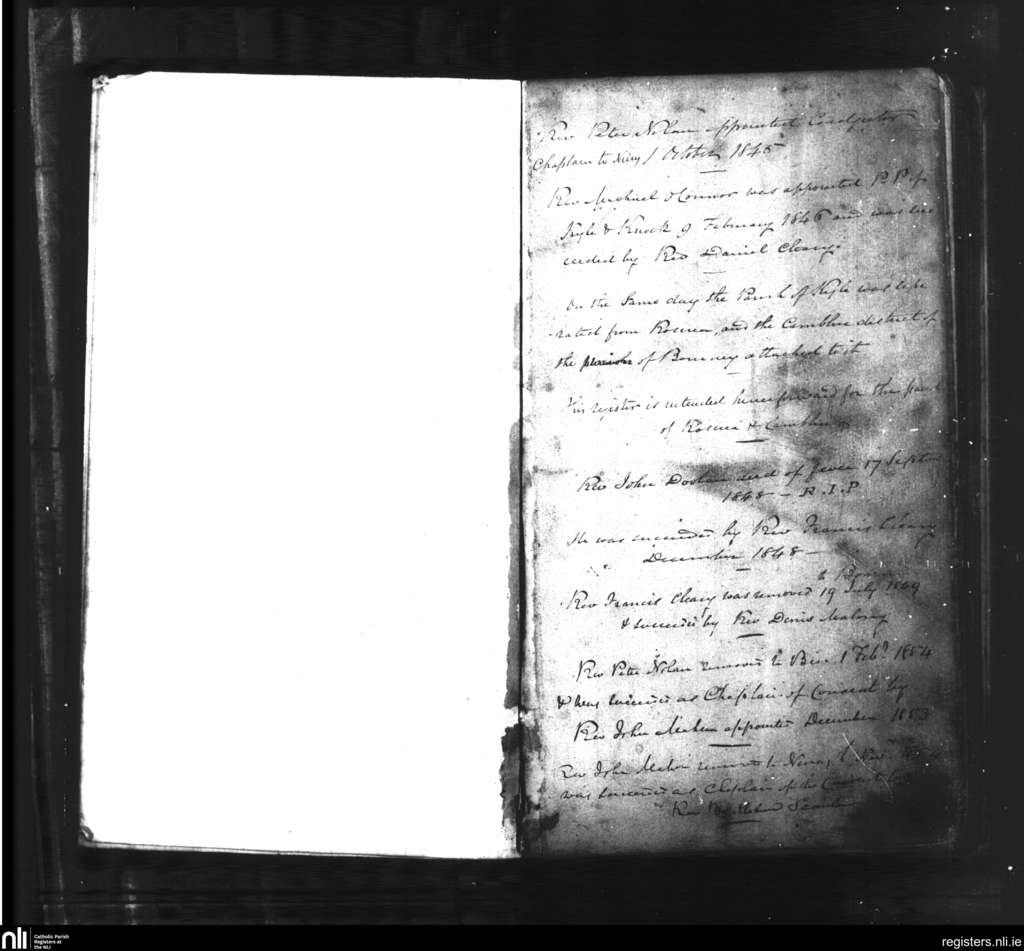 Rev Peter Nolan appointed Coadjutor
Chaplain to Nuns 1 October 1845
Rev Michael O'Connor was appointed P.P. of
Kyle & Knock 9 February 1846 and was suc
ceeded by Rev Daniel Cleary
On the same day the Parish of Kyle was sepa
rated from Roscrea, and the Camblin district of
the parish of Bourney attached to it
This register is intended henceforward for the parish
of Roscrea & Camblin
Rev John Doolan died of fever 17 Septr
1848 — R.I.P
He was succeeded by Rev Francis Cleary
December 1848 —
Rev Francis Cleary was removed to 19 July 1849
& succeeded by Rev Denis Malony
Rev Peter Nolan removed to Birr 1 Feby 1854
& was succeeded as Chaplain of Convent by
Rev John Meehan appointed December 1853
Rev John removed to
was succeeded as Chaplain of the Convent
Rev
nli
Catholic Parish
Registers at
the NLI
registers.nli.ie